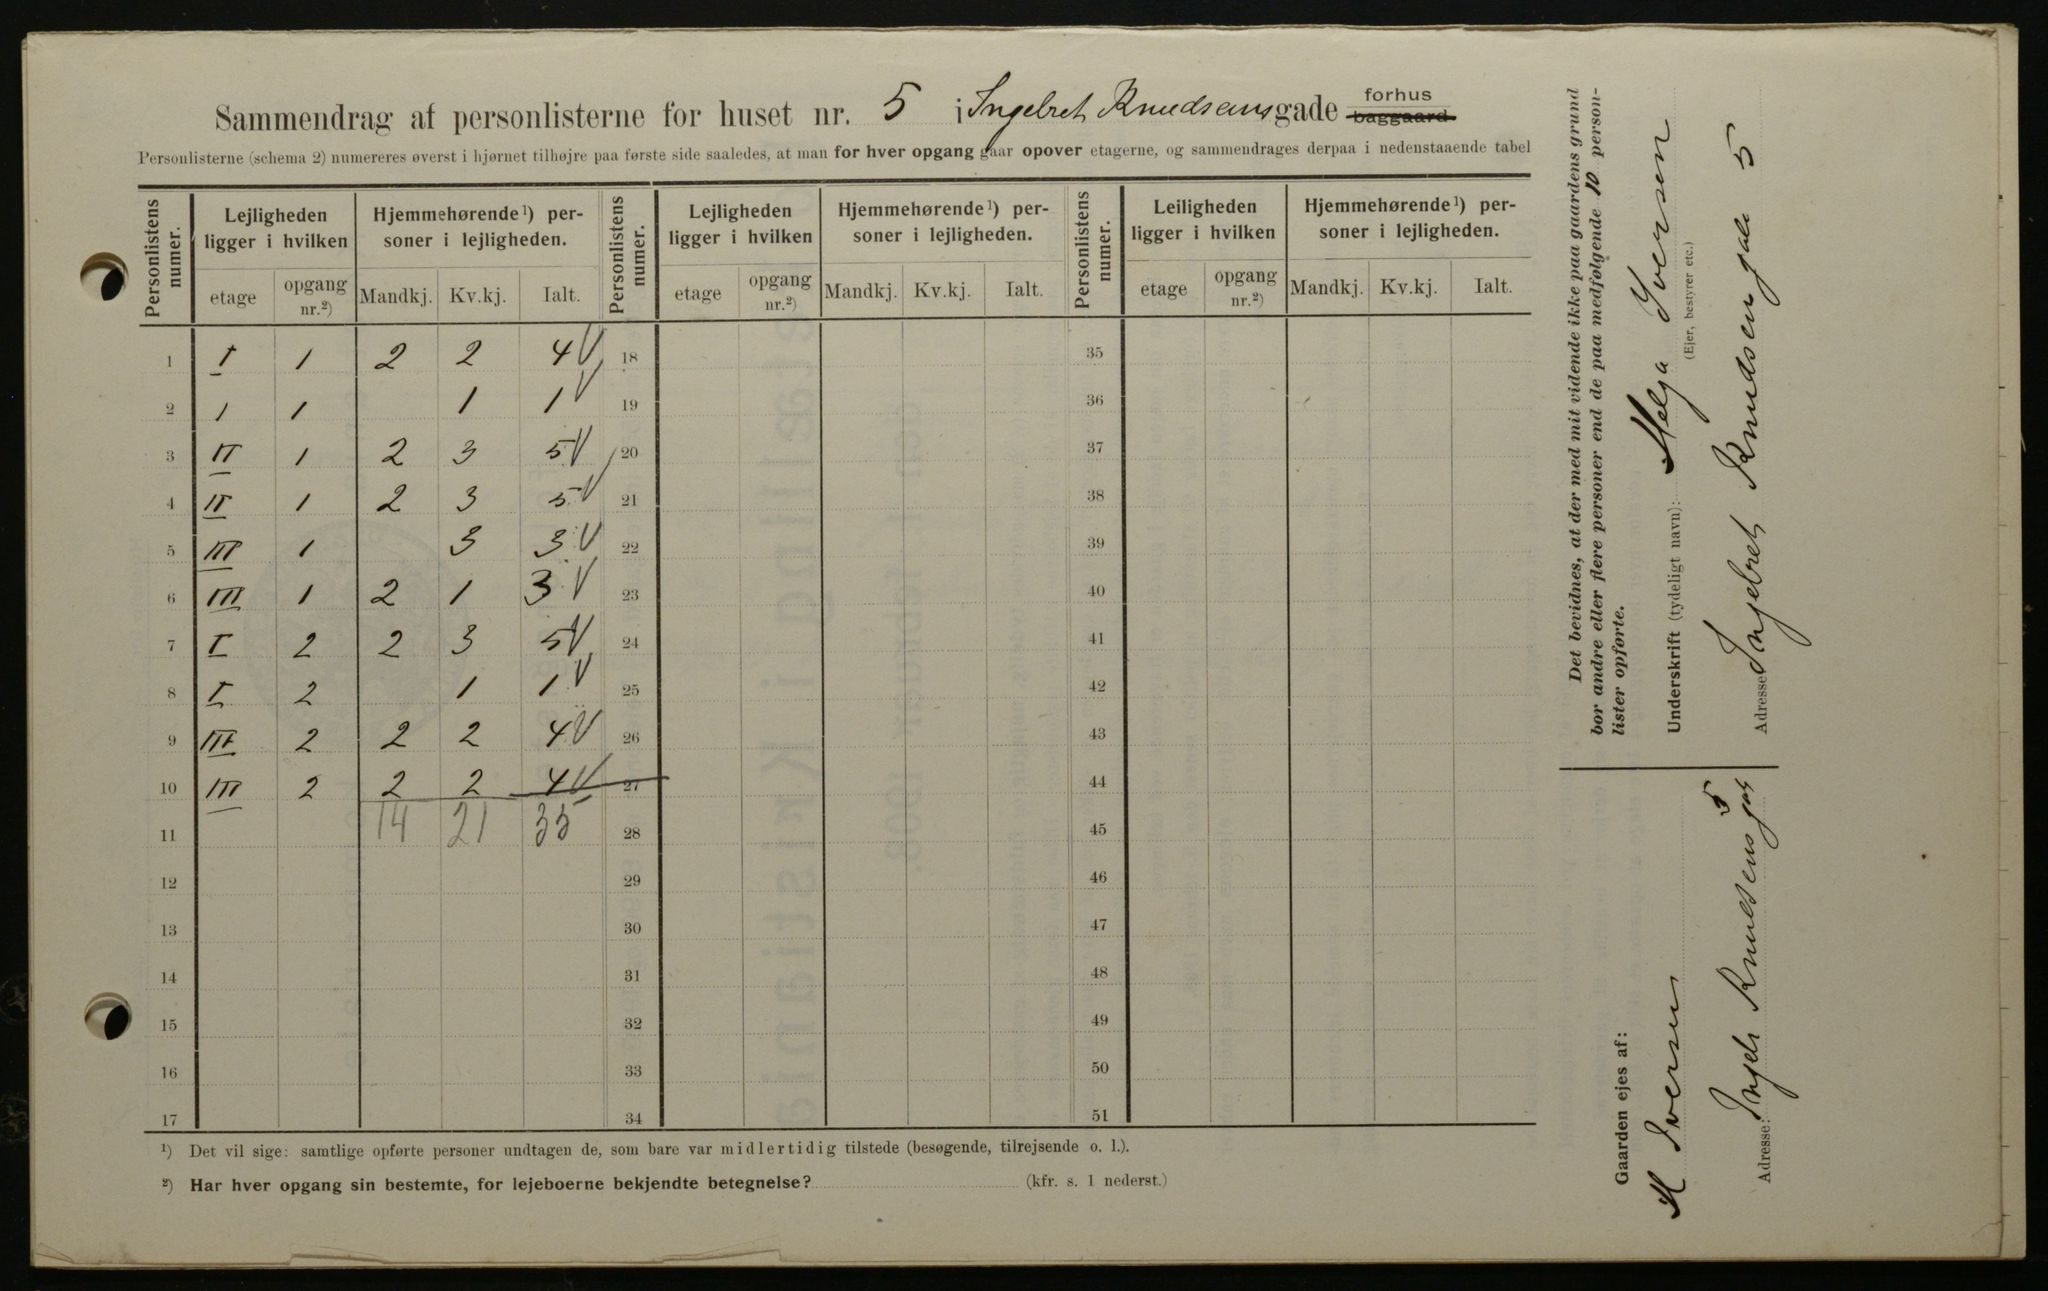 Sammendrag af personlisterne for huset nr. 5 i Ingebret Knudsensgade forhus baggaard
Personlisterne (schema 2) numereres øverst i hjørnet tilhøjre paa første side saaledes, at man for hver opgang gaar opover etagerne, og sammendrages derpaa i nedenstaaende tabel
Personlistens numer. Lejligheden ligger i hvilken Hjemmehørende¹) personer i lejligheden. Personlistens numer. Lejligheden ligger i hvilken Hjemmehørende¹) personer i lejligheden. Personlistens numer. Leiligheden ligger i hvilken Hjemmehørende¹) personer i lejligheden.
etage opgang nr.²) Mandkj. Kv.kj. Ialt. etage opgang nr.²) Mandkj. Kv.kj. Ialt. etage opgang nr.²) Mandkj. Kv.kj. Ialt.
1 I 1 2 2 4 V 18 35
2 I 1 1 1 V 19 36
3 II 1 2 3 5 V 20 37
4 II 1 2 3 5 V 21 38
5 III 1 3 3 V 22 39
6 III 1 2 1 3 V 23 40
7 I 2 2 3 5 V 24 41
8 I 2 1 1 V 25 42
9 III 2 2 2 4 V 26 43
10 III 2 2 2 4 V 27 44
11 14 21 35 28 45
12 29 46
13 30 47
14 31 48
15 32 49
16 33 50
17 34 51
¹) Det vil sige: samtlige opførte personer undtagen de, som bare var midlertidig tilstede (besøgende, tilrejsende o. l.).
²) Har hver opgang sin bestemte, for lejeboerne bekjendte betegnelse? (kfr. s. 1 nederst.)
Det bevidnes, at der med mit vidende ikke paa gaardens grund
bor andre eller flere personer end de paa medfølgende 10 person-
lister opførte.
Underskrift (tydeligt navn): Helga Iversen
(Ejer, bestyrer etc.)
Adresse Ingebret Knudsen gade 5
Gaarden ejes af:
H Iversen
Adresse: Ingebr Knudsens gat 5